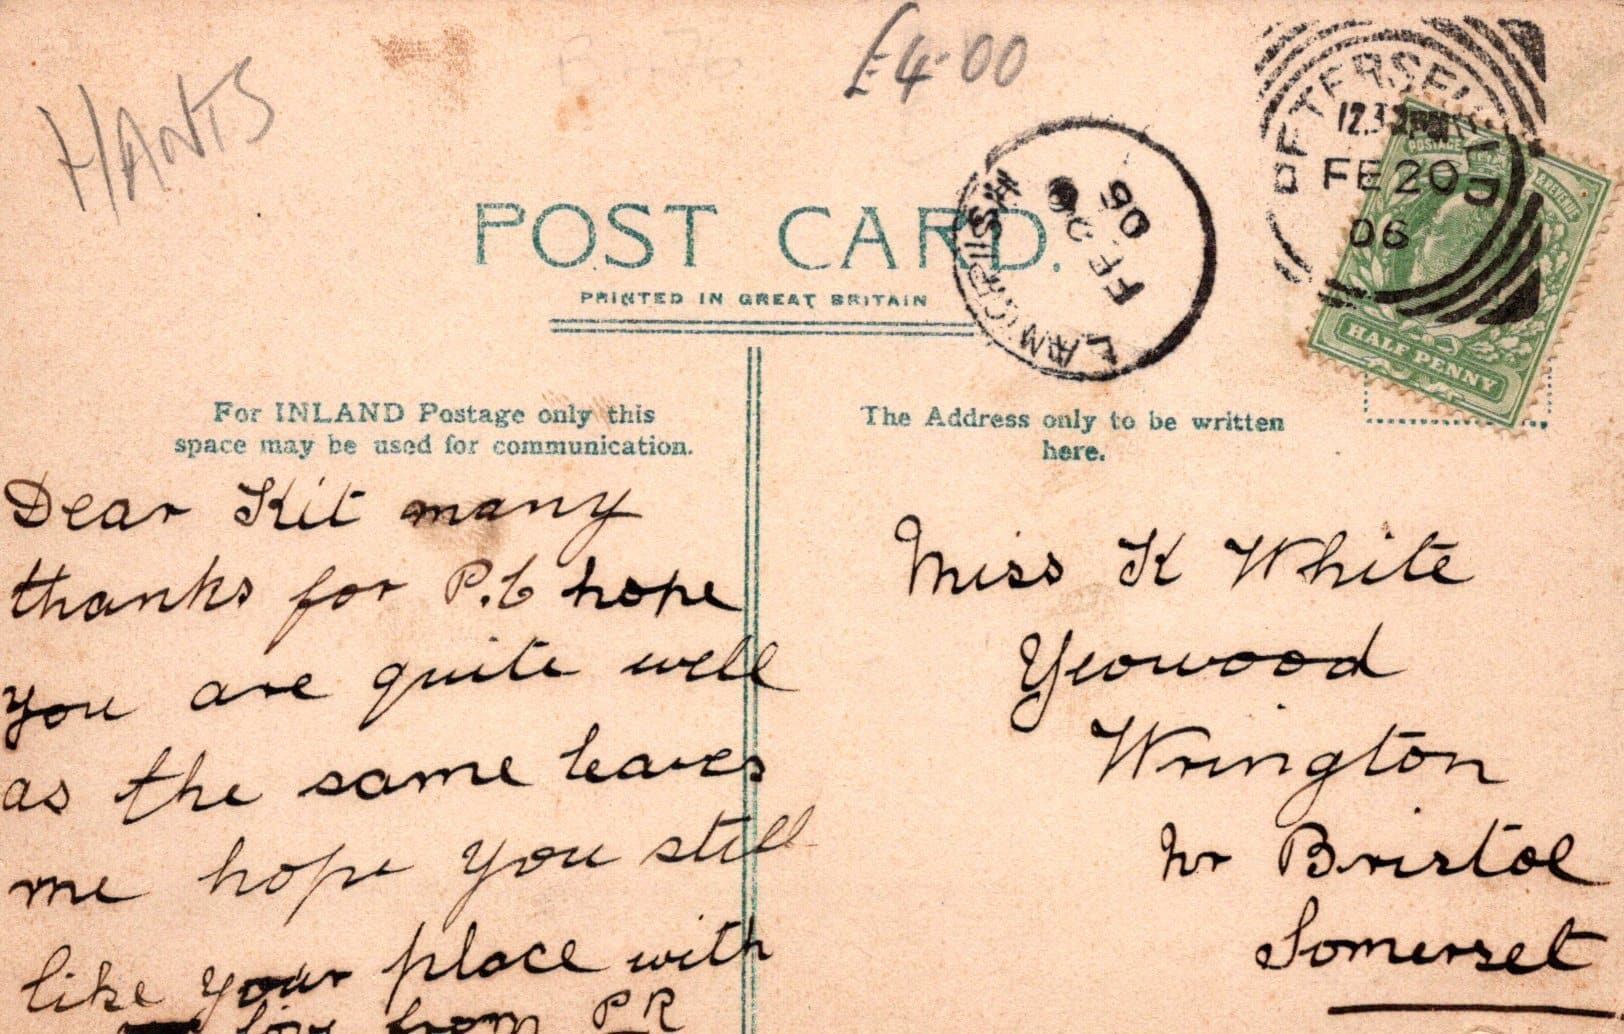 HANTS
£4.00
PETERSFIELD
12.3 PM
FE 20
06
POSTAGE & REVENUE
HALF PENNY
FE 20
06
POST CARD.
PRINTED IN GREAT BRITAIN
For INLAND Postage only this
space may be used for communication.
The Address only to be written
here.
Dear Kit many
thanks for P.C hope
you are quite well
as the same leaves
me hope you still
like your place with
love from PR
Miss K White
Yeowood
Wrington
Nr Bristol
Somerset